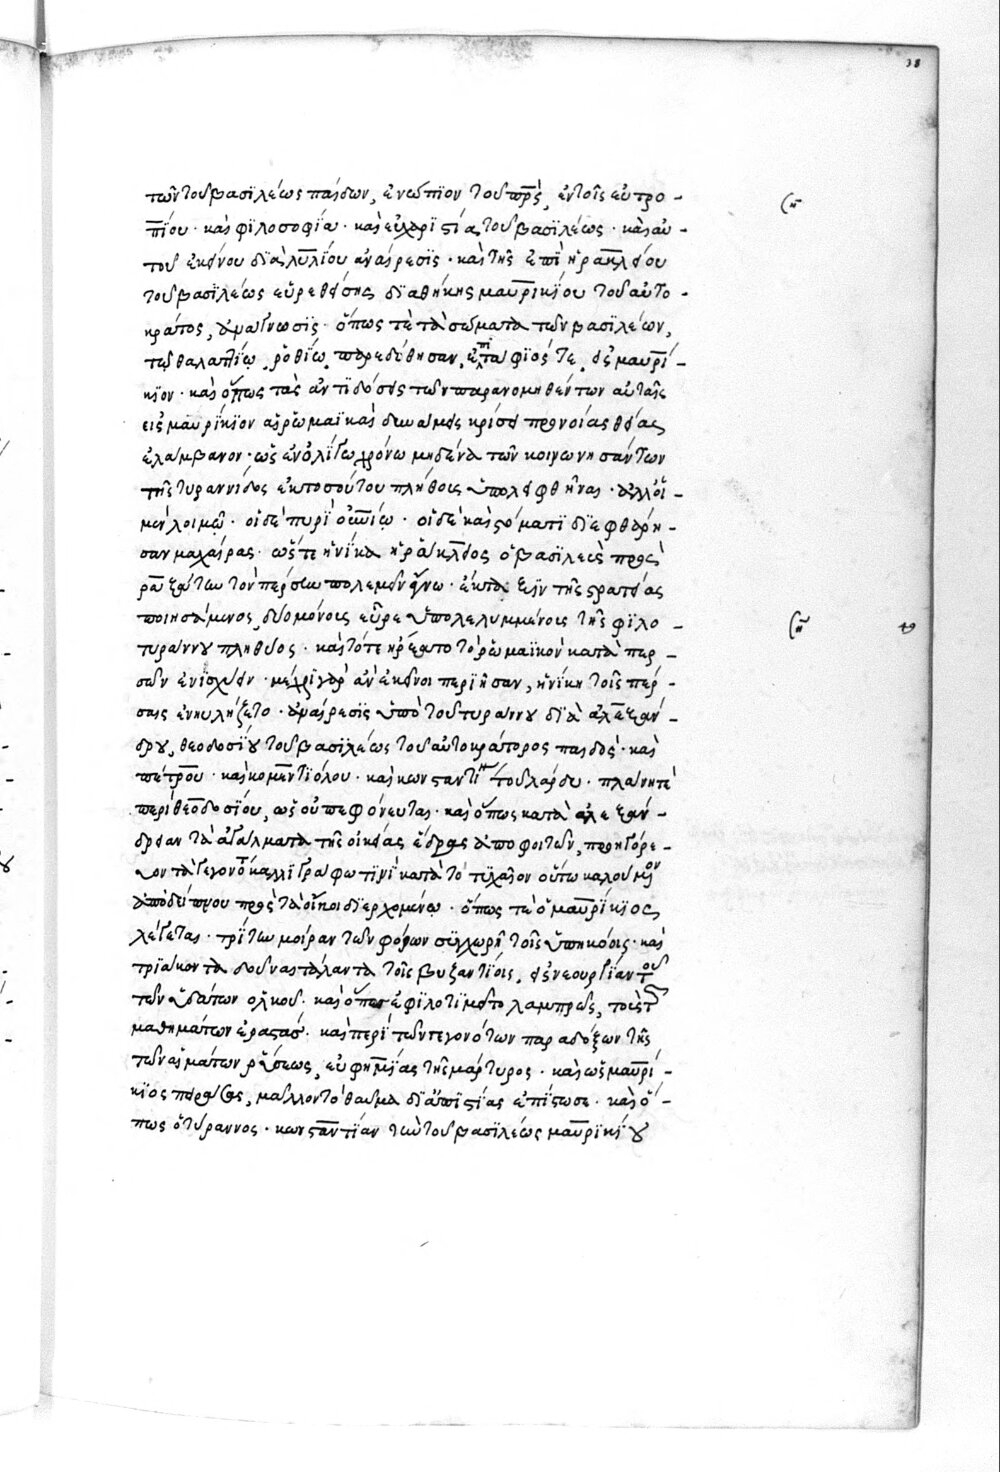 38
τῶν τοῦ βασϊλέως παίδων, ἐνώπϊον τοῦ πρ̅ς̀, ἐν τοῖς εὐτρο-
πίου · καὶ φϊλοσοφία · καὶ εὐχαριστία τοῦ βασϊλέως · καὶ αὐ-
τοῦ ἐκείνου διὰ λϊλίου ἀναίρεσϊς · καὶ τῆς ἐπὶ ἡρακλείου
τοῦ βασϊλέως εὑρεθείσης δϊαθήκης μαυρικίου τοῦ αὐτο-
κράτος, ἀνάγνωσϊς · ὅπως τὲ τὰ σώματα τῶν βασϊλέων,
τῶ θαλαττίω ῥοθίω παρεδόθησαν, ἐπιτάφϊός τε εἰς μαυρί-
κϊον · καὶ ὅπως τὰς ἀντϊδόσεις τῶν παρανομηθέντων αὐταῖς
εἰς μαυρίκϊον αἱ ῥωμαϊκαὶ δυνάμεις κρίσει προνοίας θείας
ἐλάμβανον · ὡς ἐν ὀλίγω χρόνω μηδένα τῶν κοινωνησάντων
τῆς τυραννίδος ἐκ τοσούτου πλήθους ὑπολειφθῆναι · ἀλλ' οἱ
μὲν λοιμῶ · οἱ δὲ πυρὶ οὐνίω · οἱ δὲ καὶ στόματϊ δϊεφθάρη-
σαν μαχαίρας · ὥστε ἡνίκα ἡράκλειος ὁ βασϊλεὺς πρὸς
ῥαζάτην τὸν πέρσην πόλεμον ἤνω · ἐκτάξϊν τῆς στρατείας
ποιησάμενος, δύο μόνους εὗρε ὑπολελυμμένους τῆς φϊλο-
τυράννου πληθύος · καὶ τότε ἤρξατο τὸ ῥωμαϊκὸν κατὰ περ-
σῶν ἐνϊσχύειν · μέχρϊ γὰρ ἂν ἐκεῖνοι περϊῆσαν, ἡ νίκη τοῖς πέρ-
σαις ἐνηυλήζετο · ἀναίρεσϊς ὑπὸ τοῦ τυράννου δϊὰ ἀλεξάν-
δρου, θεοδοσίου τοῦ βασϊλέως τοῦ αὐτοκράτορος παιδὸς · καὶ
πέτρου · καὶ κομεντϊόλου · καὶ κωνσταντίνου τοῦ λάρδυ · πλάνη τὲ
περὶ θεοδοσίου, ὡς οὐ πεφόνευται · καὶ ὅπως κατὰ ἀλεξάν-
δρειαν τὰ ἀγάλματα τῆς οἰκείας ἕδρας ἀποφοιτῶν, προηγόρε-
υον τὰ γεγονότα καλλϊγράφω τϊνὶ κατὰ τὸ τϋχαῖον οὕτω καλούμενον
ἀπὸ δείπνου πρὸς τὰ οἴκοι δϊερχομένω · ὅπως τὲ ὁ μαυρίκϊος
λέγεται · τρίτην μοῖραν τῶν φόρων συγχωρῆ τοῖς ὑπηκόοις · καὶ
τρϊάκοντα δοῦναι τάλαντα τοῖς βυζαντίοις, εἰς νεουργίαν τοὺς
τῶν ὑδάτων ὁλκοὺς · καὶ ὅπως ἐφϊλοτϊμεῖτο λαμπρῶς, τοὺς τῶν
μαθημάτων ἐραστάς · καὶ περὶ τῶν γεγονότων παραδόξων τῆς
τῶν αἱμάτων ῥύσεως, εὐφημίας τῆς μάρτυρος · καὶ ὡς μαυρί-
κϊος πειραθεὶς, μᾶλλον τὸ θαῦμα δϊ' ἀπιστίας ἐπίστωσε · καὶ ὅ-
πως ὁ τύραννος · κωνσταντίαν τὴν τοῦ βασϊλέως μαυρϊκίου